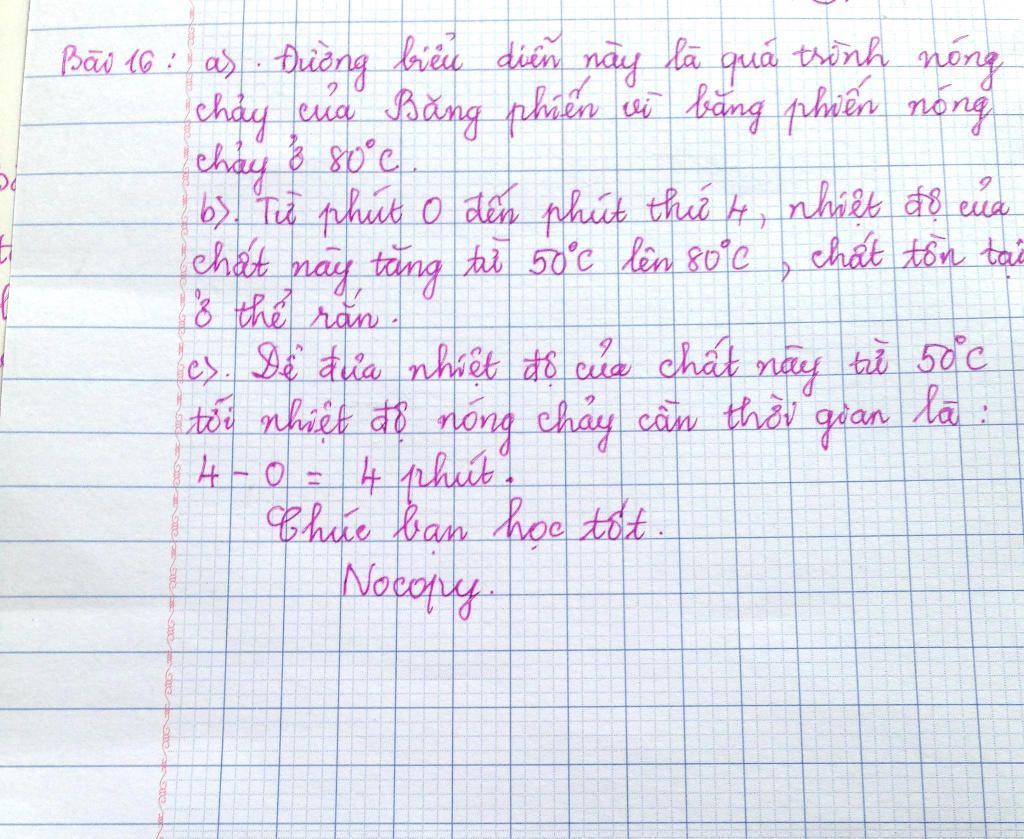 Bài 16: a). Đường biểu diễn này là quá trình nóng
chảy của Băng phiến vì băng phiến nóng
chảy ở 80°C.
b). Từ phút 0 đến phút thứ 4, nhiệt độ của
chất này tăng từ 50°C lên 80°C, chất tồn tại
ở thể rắn.
c). Để đưa nhiệt độ của chất này từ 50°C
tới nhiệt độ nóng chảy cần thời gian là:
4 - 0 = 4 phút.
Chúc bạn học tốt.
Nocopy.